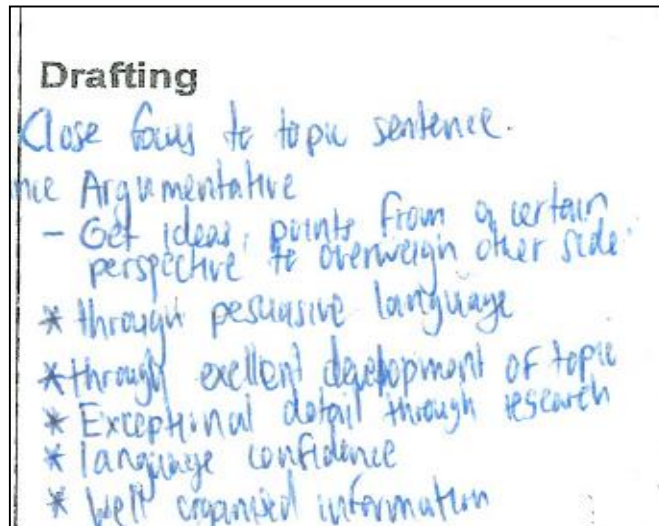 Drafting
Close focus to topic sentence.
nce Argumentative
- Get ideas, points from a certain
perspective to overweigh other side.
* through pesuasive language
* through exellent development of topic
* Exceptional detail through research
* language confidence
* Well organised information